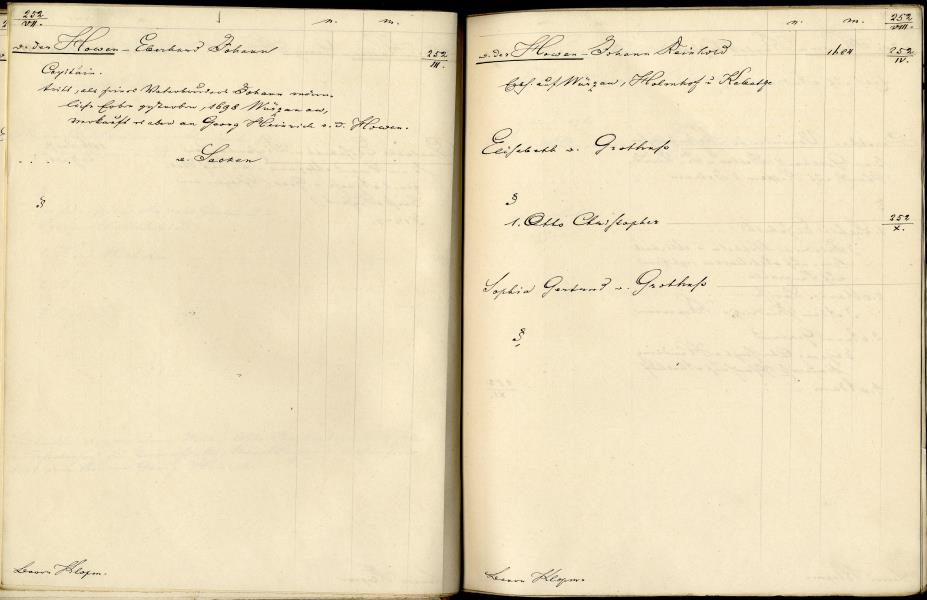 252
VII.
n. m.
v. der Howen - Eberhard Johann
252
III.
Capitain.
tritt, als seines Vaterbruders Johann männ-
liche Erben gestorben, 1698 Würzau an,
verkauft es aber an Georg Heinrich v. d. Howen.
. . . . v. Sacken
§
Baron Klopm.
252
VIII.
n. m.
v. der Howen - Johann Reinhold 1684
252
IV.
Erbh. auf Würzau, Holmhof u
Elisabeth v. Grothuss
§
1. Otto Christopher
252
X.
Sophia Gertrud v. Grothuss
§
Baron Klopm.